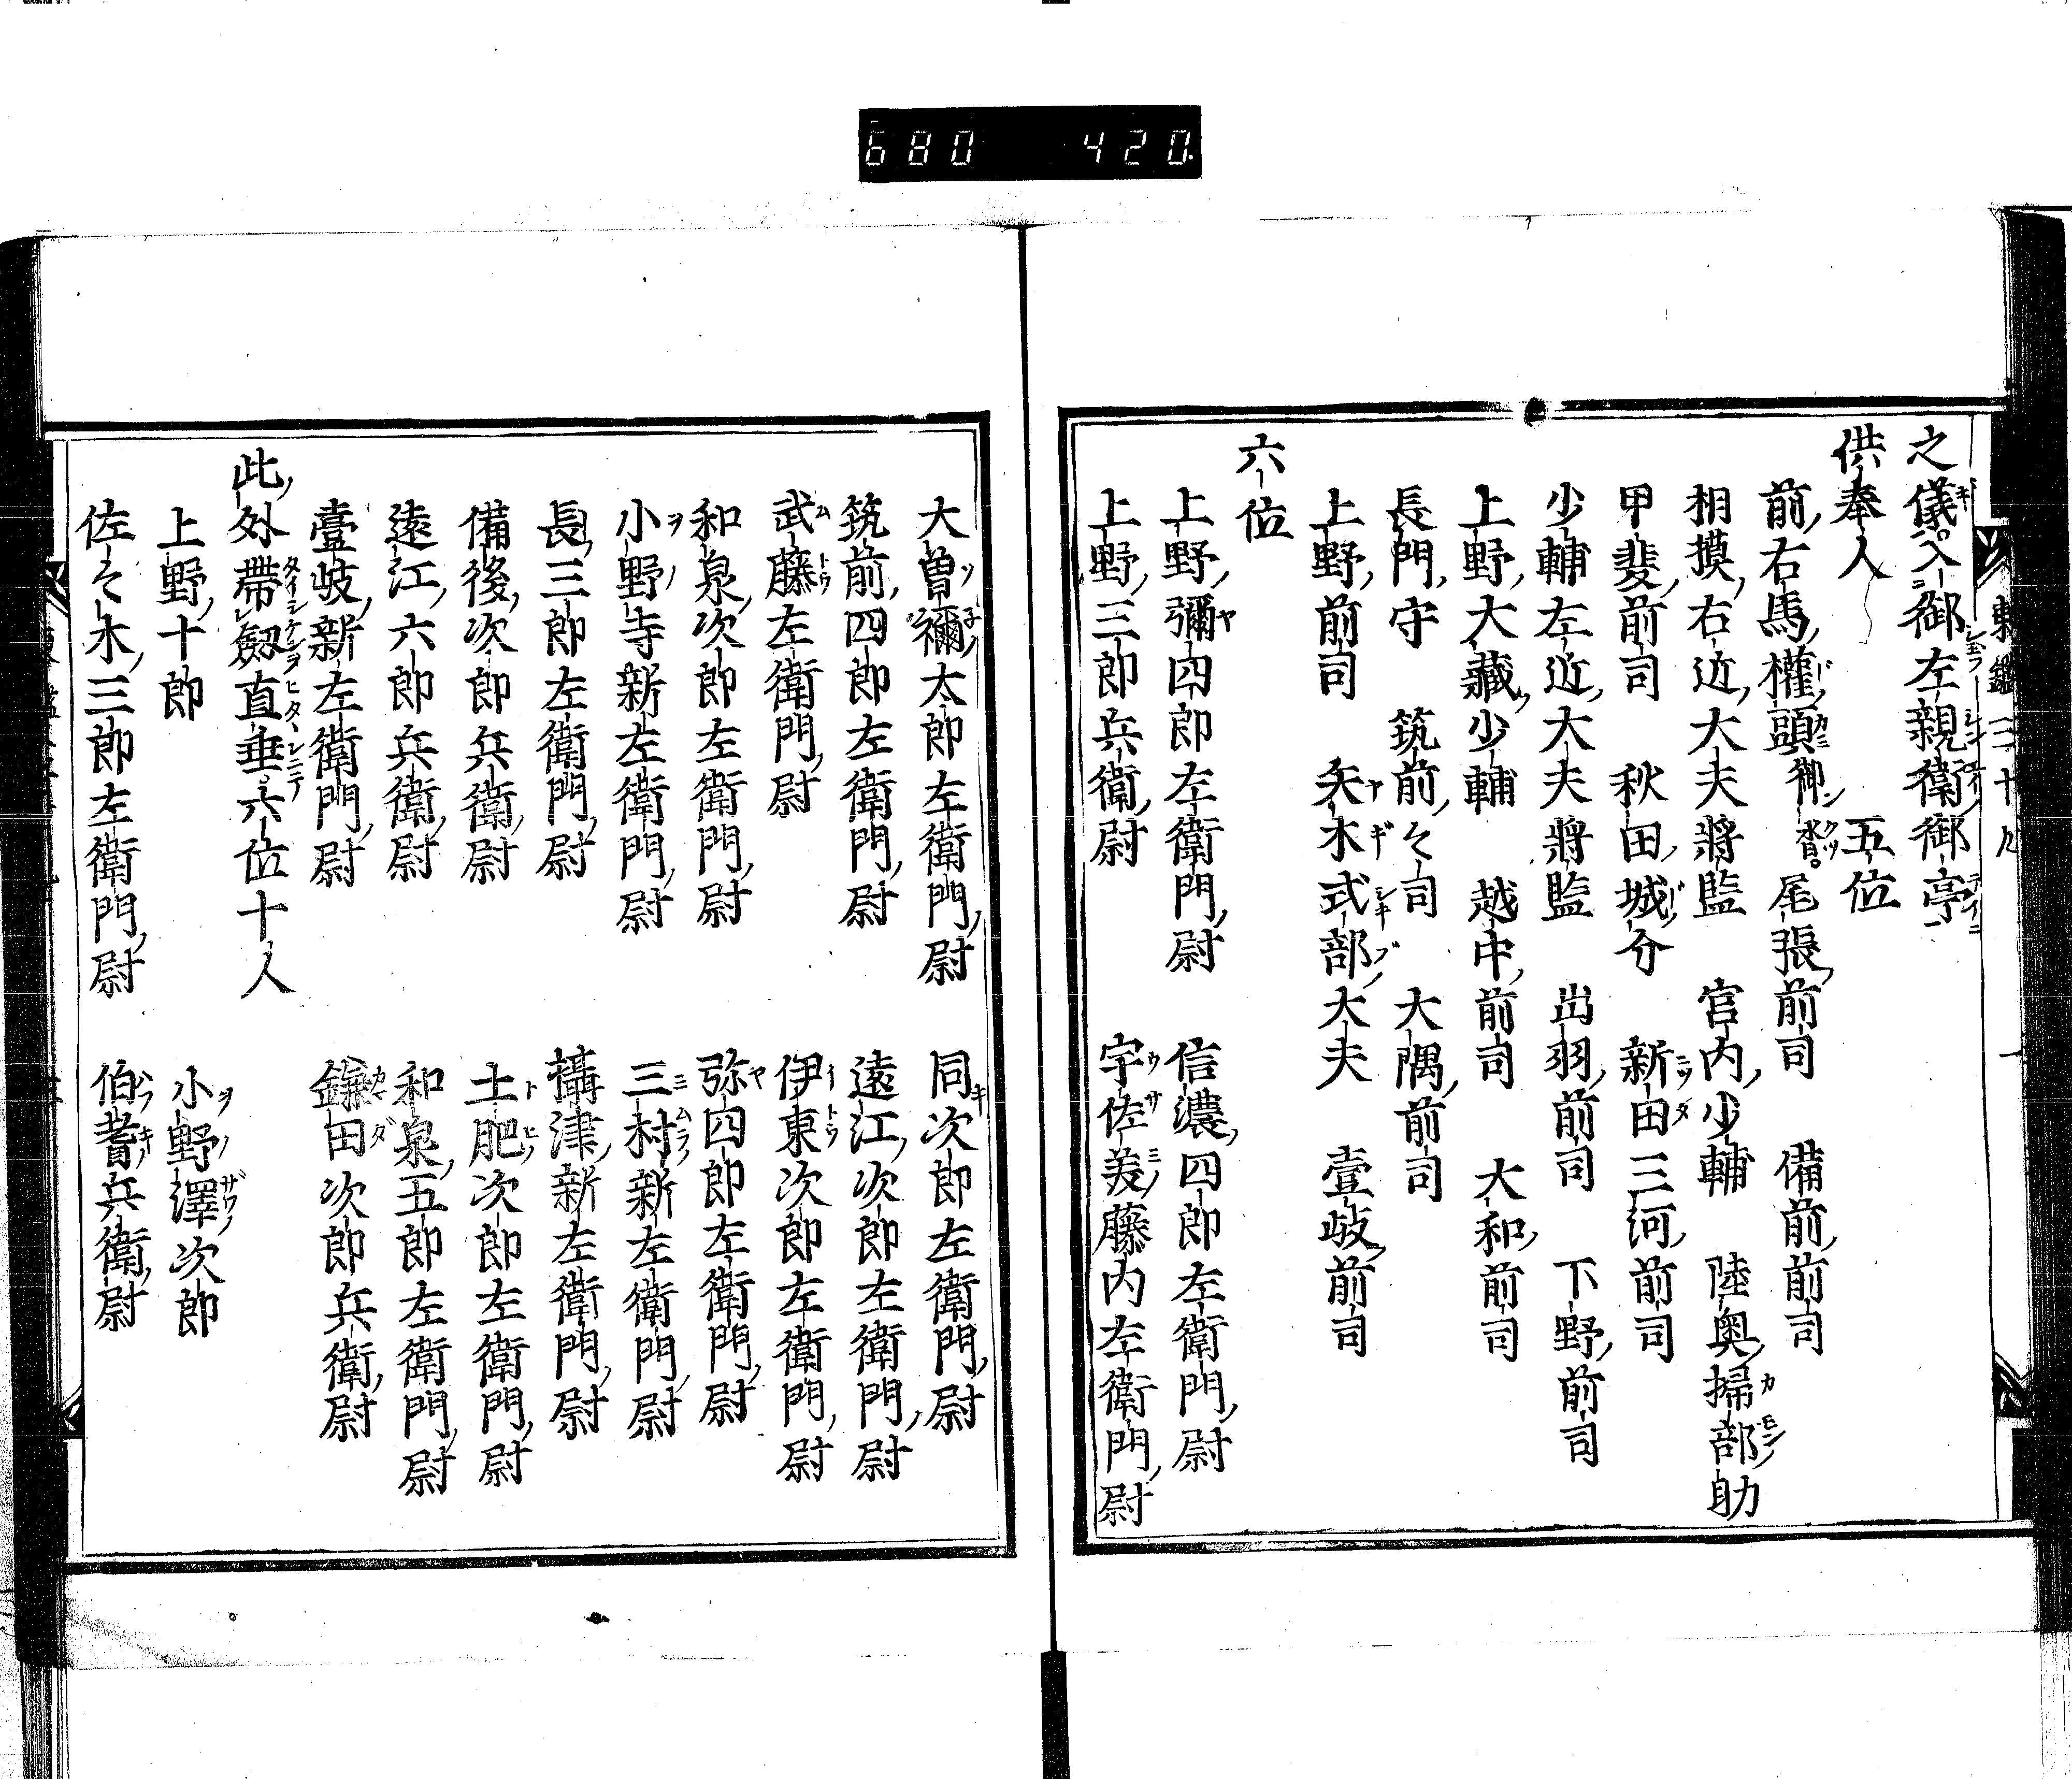 680 420.
之儀。入御左親衛御亭
供奉人 五位
前右馬權頭御沓。尾張前司 備前前司
相摸右近大夫將監 宮内少輔 陸奥掃部助
甲斐前司 秋田城介 新田三河前司
少輔左近大夫將監 出羽前司 下野前司
上野大藏少輔 越中前司 大和前司
長門守 筑前々司 大隅前司
上野前司 矢木式部大夫 壹岐前司
六位
上野彌四郎左衛門尉 信濃四郎左衛門尉
上野三郎兵衛尉 宇佐美藤内左衛門尉
大曽禰太郎左衛門尉 同次郎左衛門尉
筑前四郎左衛門尉 遠江次郎左衛門尉
武藤左衛門尉 伊東次郎左衛門尉
和泉次郎左衛門尉 弥四郎左衛門尉
小野寺新左衛門尉 三村新左衛門尉
長三郎左衛門尉 攝津新左衛門尉
備後次郎兵衛尉 土肥次郎左衛門尉
遠江六郎兵衛尉 和泉五郎左衛門尉
壹岐新左衛門尉 鎌田次郎兵衛尉
此外帶劔直垂。六位十人
上野十郎 小野澤次郎
佐々木三郎左衛門尉 伯耆兵衛尉